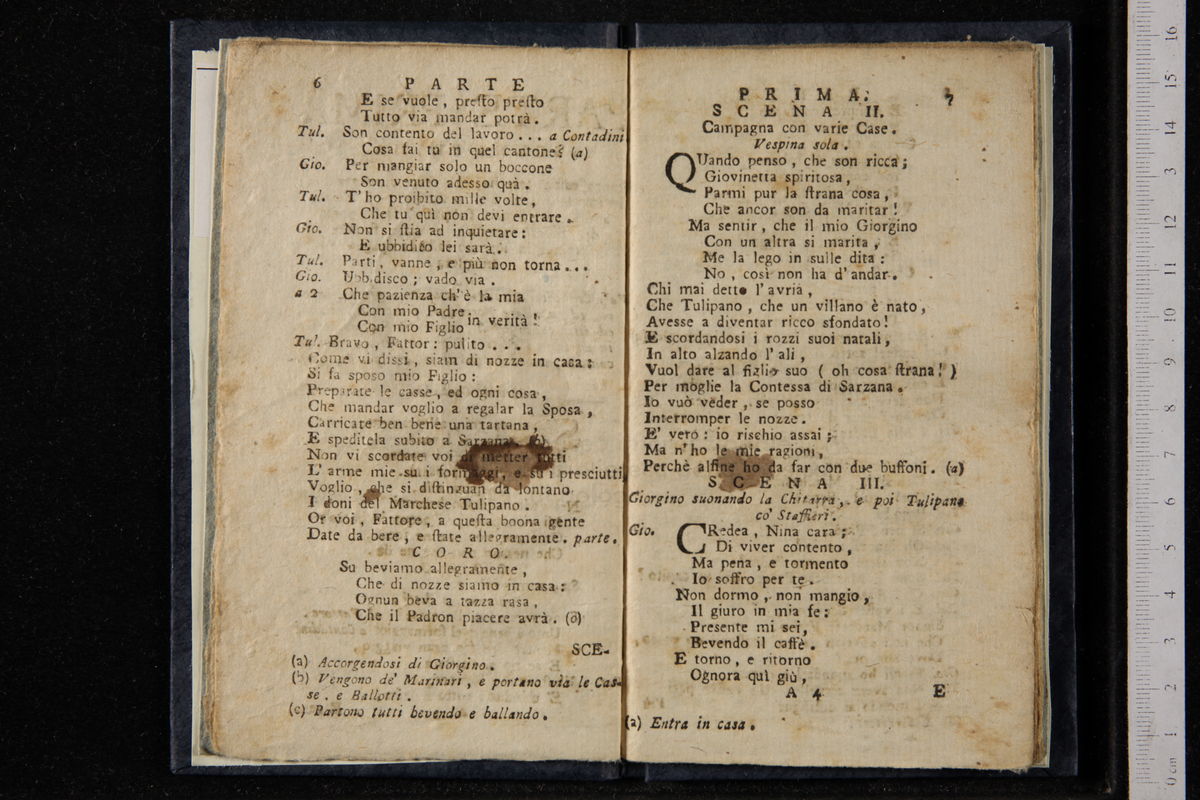 6 PARTE
E se vuole, preſto preſto
Tutto via mandar potrà.
Tul. Son contento del lavoro... a Contadini.
Cosa fai tu in quel cantone? (a)
Gio. Per mangiar solo un boccone
Son venuto adesso quà.
Tul. T'ho proibito mille volte,
Che tu quì non devi entrare.
Gio. Non si ſtia ad inquietare:
E ubbidito lei sarà.
Tul. Parti, vanne, e più non torna...
Gio. Ubbidisco; vado via.
a 2 Che pazienza ch'è la mia
Con mio Padre
Con mio Figlio in verità!
Tul. Bravo, Fattor: pulito...
Come vi dissi, siam di nozze in casa:
Si fa sposo mio Figlio:
Preparate le casse, ed ogni cosa,
Che mandar voglio a regalar la Sposa,
Carricate ben bene una tartana,
E speditela subito a Sarzana. (b)
Non vi scordate voi di metter tutti
L'arme mie su i formaggi, e su i presciutti,
Voglio, che si diſtinguan da lontano
I doni del Marchese Tulipano.
Or voi, Fattore, a queſta boona gente
Date da bere, e ſtate allegramente. parte.
CORO.
Su beviamo allegramente,
Che di nozze siamo in casa:
Ognun beva a tazza rasa,
Che il Padron piacere avrà. (c)
SCE-
(a) Accorgendosi di Giorgino.
(b) Vengono de' Marinari, e portano via le Cas-
se, e Ballotti.
(c) Partono tutti bevendo e ballando.
PRIMA. 7
SCENA II.
Campagna con varie Case.
Vespina sola.
QUando penso, che son ricca;
Giovinetta spiritosa,
Parmi pur la ſtrana cosa,
Che ancor son da maritar!
Ma sentir, che il mio Giorgino
Con un altra si marita,
Me la lego in sulle dita:
No, così non ha d'andar.
Chi mai detto l'avria,
Che Tulipano, che un villano è nato,
Avesse a diventar ricco sfondato!
E scordandosi i rozzi suoi natali,
In alto alzando l'ali,
Vuol dare al figlio suo (oh cosa ſtrana!)
Per moglie la Contessa di Sarzana.
Io vuò veder, se posso
Interromper le nozze.
E' vero: io rischio assai;
Ma n'ho le mie ragioni,
Perchè alfine ho da far con due buffoni. (a)
SCENA III.
Giorgino suonando la Chitarra, e poi Tulipano
co' Staffieri.
Gio. CRedea, Nina cara;
Di viver contento,
Ma pena, e tormento
Io soffro per te.
Non dormo, non mangio,
Il giuro in mia fe:
Presente mi sei,
Bevendo il caffè.
E torno, e ritorno
Ognora quì giù,
A 4 E
(a) Entra in casa.
0 cm 1 2 3 4 5 6 7 8 9 10 11 12 13 14 15 16